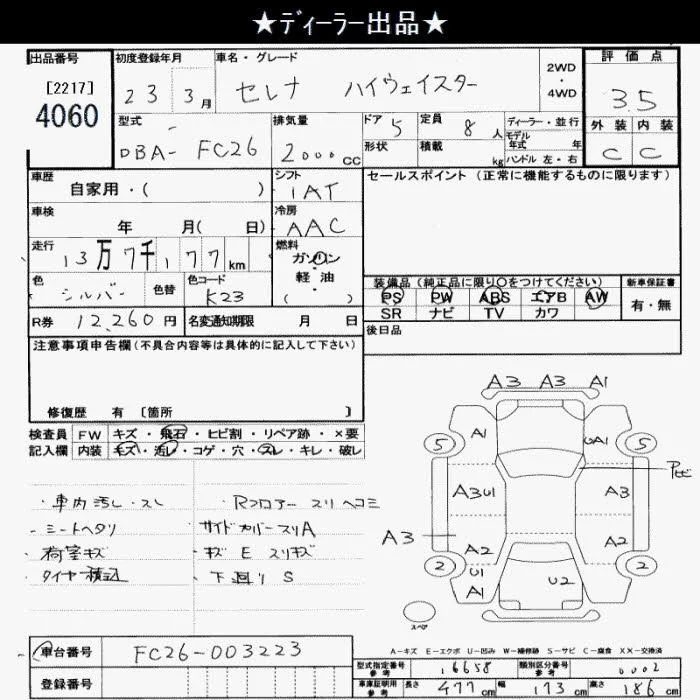 ★ディーラー出品★
出品番号 初度登録年月 車名・グレード 2WD・4WD 評価点
[2217] 4060
23年 3月 セレナ ハイウェイスター 3.5
型式 排気量 ドア 5 定員 8人 ディーラー・並行 外装 内装
DBA-FC26 2000cc 形状 積載 kg モデル年式 年 ハンドル 左・右 C C
車歴 自家用・( ) シフト IAT セールスポイント (正常に機能するものに限ります)
車検 年 月( 日) 冷房 AAC
走行 13万7千177km 燃料 ガソリン・軽油
( )
色 シルバー 色替 色コード K23
装備品 (純正品に限り○をつけてください) 新車保証書
PS PW ABS エアB AW 有・無
SR ナビ TV カワ
R券 12,260円 名変通知期限 月 日 後日品
注意事項申告欄 (不具合内容等は具体的に記入して下さい)
修復歴 有 [箇所 ]
検査員 FW キズ・飛石・ヒビ割・リペア跡・×要
記入欄 内装 キズ・汚レ・コゲ・穴・スレ・キレ・破レ
・車内汚レ・スレ ・Rフロアースリヘコミ
・シートヘタリ サイドカバースリA
・荷室キズ ・キズ E スリキズ
・タイヤ積込 ・下廻り S
A3 A3 A1
5 A1 UA1 5
Pヒビ
A3U1 A3
A3 A2 A2
2 U1 A1 U2 A 2
スペア
A-キズ E-エクボ U-凹み W-補修跡 S-サビ C-腐食 XX-交換済
車台番号 FC26-003223
型式指定番号 参考 16658 類別区分番号 参考 0002
登録番号 車庫証明用 参考 長さ 477cm 幅 173cm 高さ 186cm